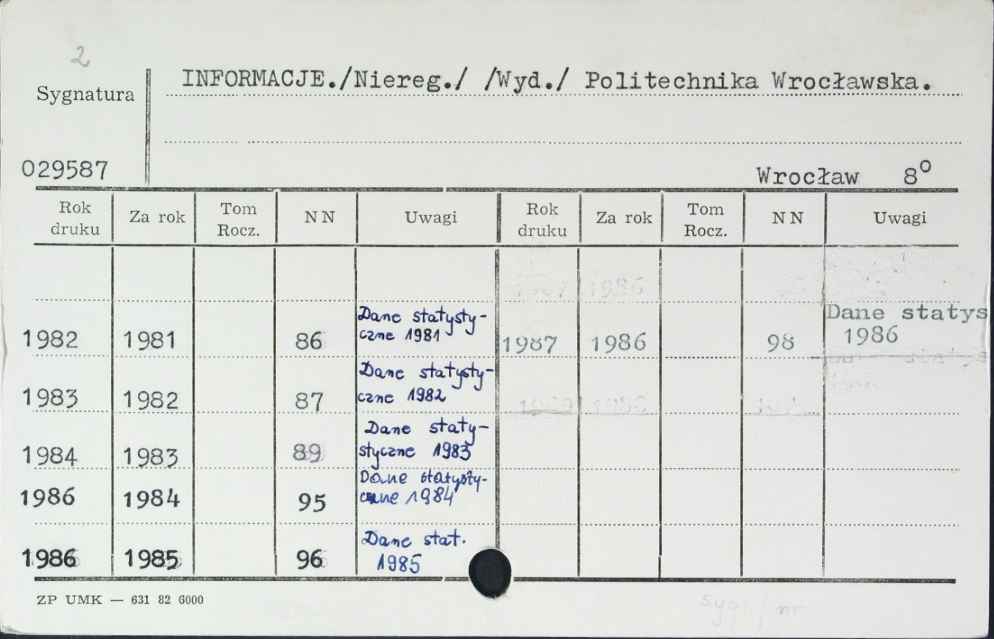 2
INFORMACJE./Niereg./ /Wyd./ Politechnika Wrocławska.
Sygnatura
029587
Wrocław 8°
Rok druku Za rok Tom Rocz. NN Uwagi Rok druku Za rok Tom Rocz. NN Uwagi
1986
1982 1981 86 Dane statysty-
czne 1981
1987 1986 98 Dane statys
1986
1983 1982 87 Dane statysty-
czne 1982
1984 1983 89 Dane staty-
styczne 1983
1986 1984 95 Dane statysty-
czne 1984
1986 1985 96 Dane stat.
1985
ZP UMK — 631 82 6000